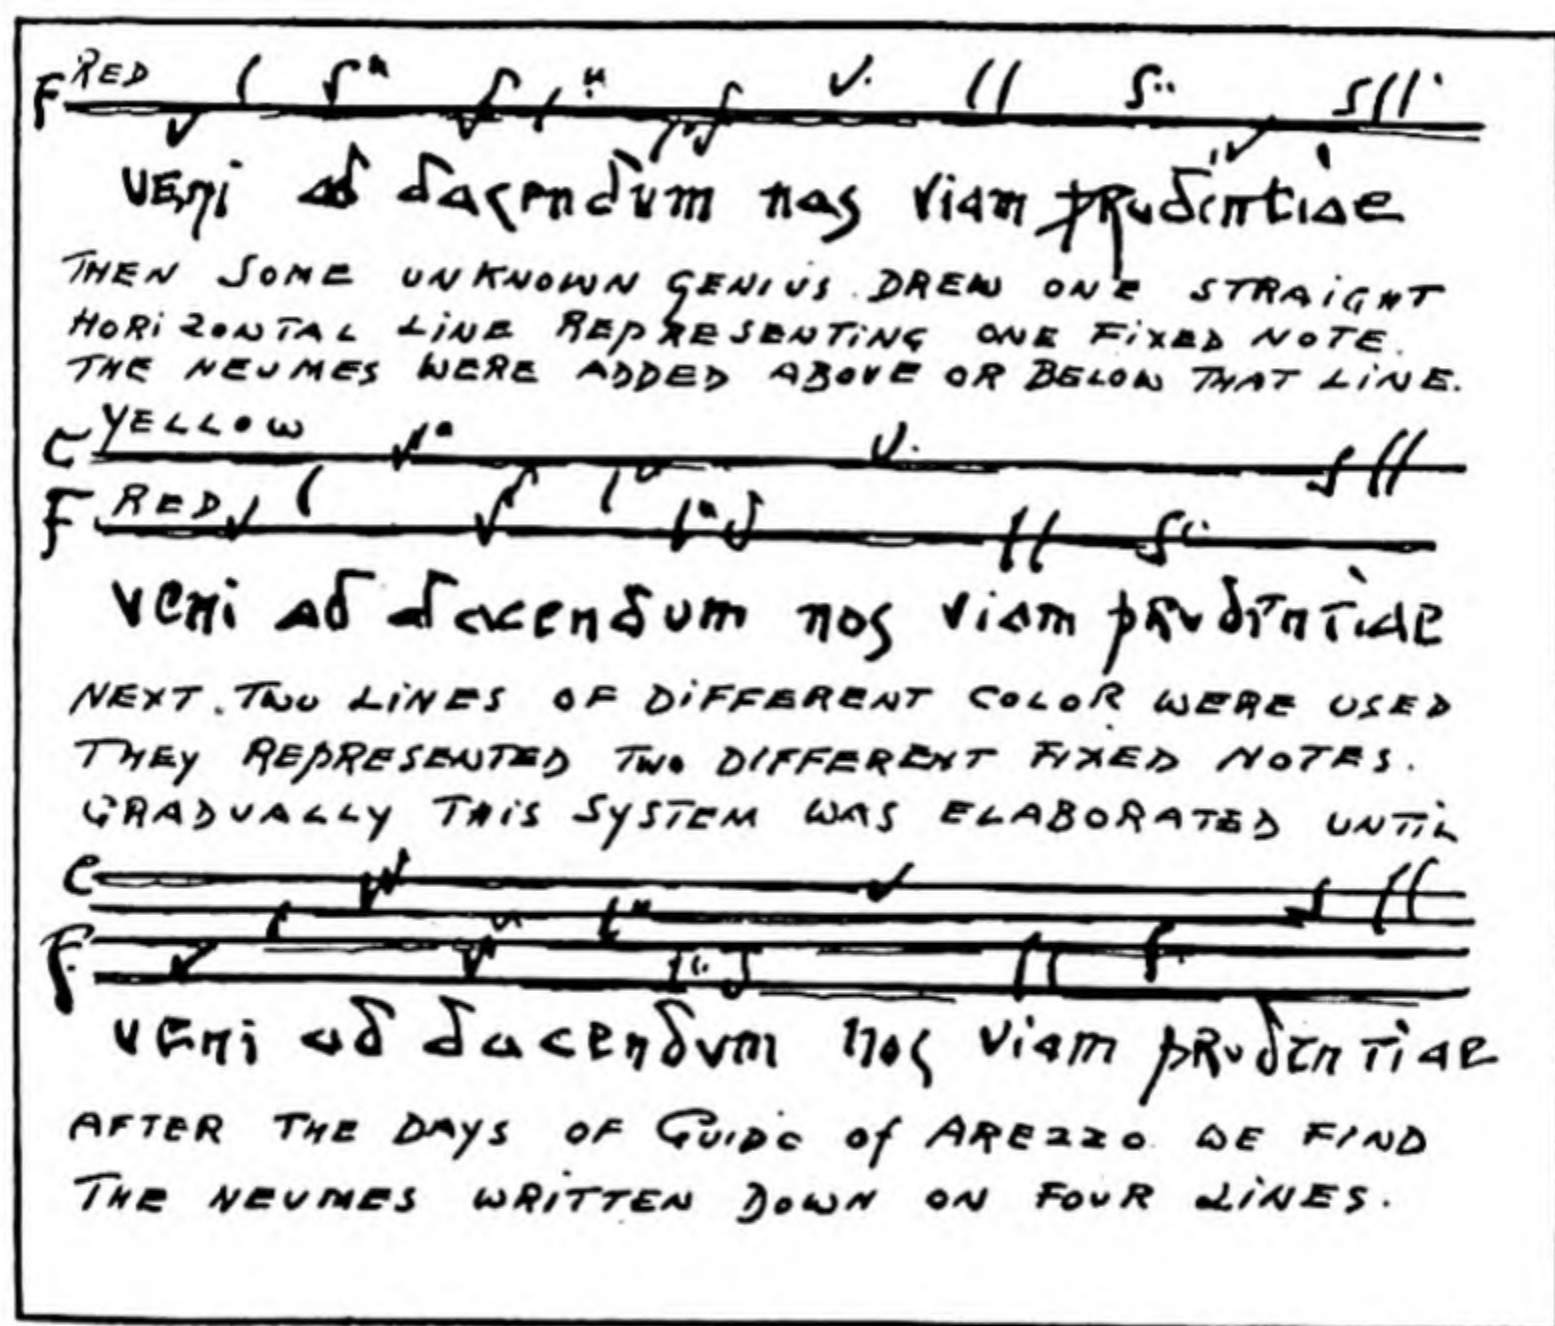 F RED
veni ad dacendum nas viam prudentiae
THEN SOME UNKNOWN GENIUS DREW ONE STRAIGHT
HORIZONTAL LINE REPRESENTING ONE FIXED NOTE.
THE NEUMES WERE ADDED ABOVE OR BELOW THAT LINE.
C YELLOW
F RED
veni ad dacendum nos viam prudentiae
NEXT TWO LINES OF DIFFERENT COLOR WERE USED
THEY REPRESENTED TWO DIFFERENT FIXED NOTES.
GRADUALLY THIS SYSTEM WAS ELABORATED UNTIL
C
F
veni ad dacendum nos viam prudentiae
AFTER THE DAYS OF GUIDO of AREZZO WE FIND
THE NEUMES WRITTEN DOWN ON FOUR LINES.